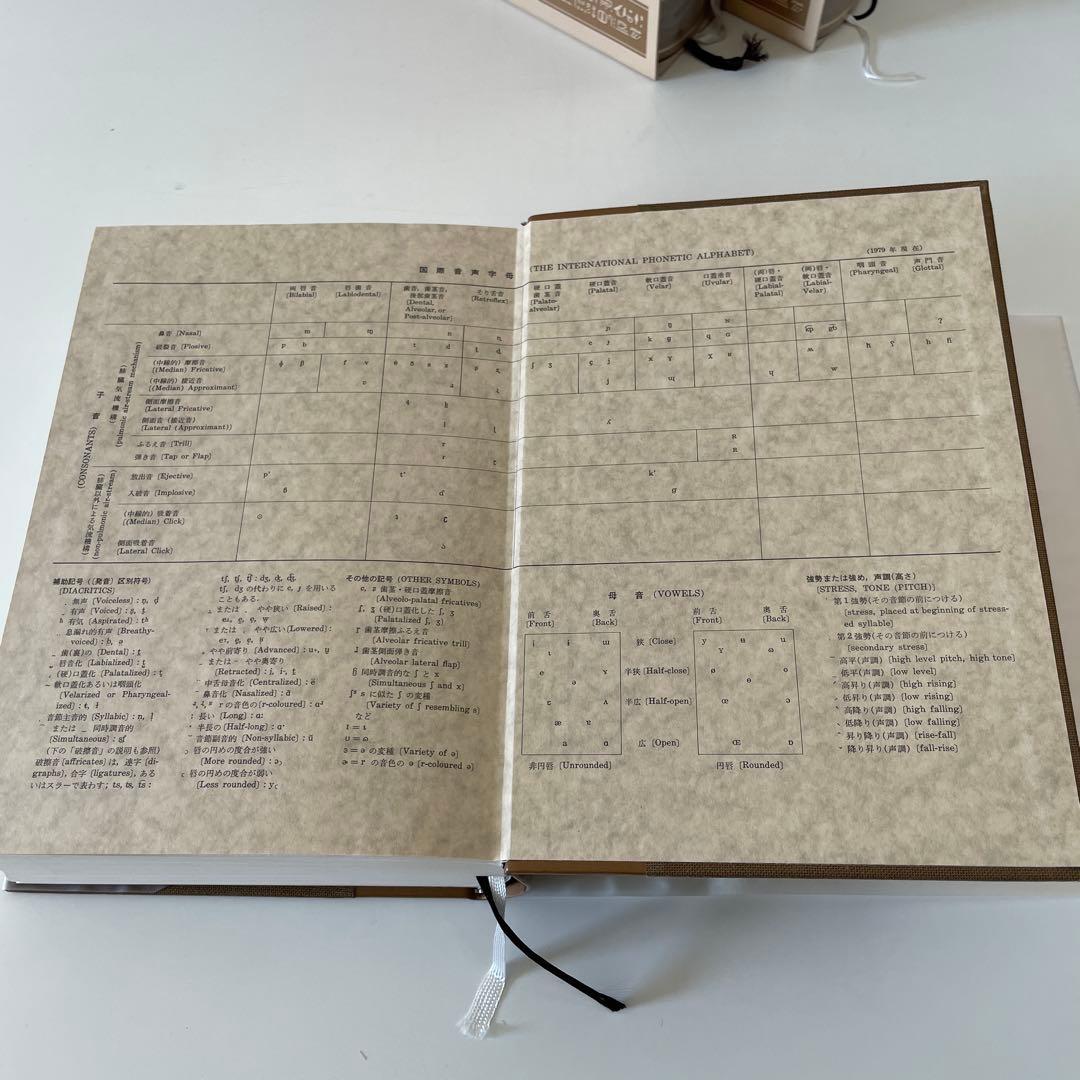 国際音声字母 (THE INTERNATIONAL PHONETIC ALPHABET)
(1979 年 現 在)
両 唇 音 (Bilabial)
唇 歯 音 (Labiodental)
歯音, 歯茎音, 後部歯茎音 (Dental, Alveolar, or Post-alveolar)
そり舌音 (Retroflex)
硬口蓋歯茎音 (Palato-alveolar)
硬口蓋音 (Palatal)
軟口蓋音 (Velar)
口蓋垂音 (Uvular)
(両)唇・硬口蓋音 (Labial-Palatal)
(両)唇・軟口蓋音 (Labial-Velar)
咽 頭 音 (Pharyngeal)
声 門 音 (Glottal)
子 音 (CONSONANTS)
(肺臓気流機構) (pulmonic air-stream mechanism)
鼻音 (Nasal) m ɱ n ɳ ɲ ŋ ɴ
破裂音 (Plosive) p b t d ʈ ɖ c ɟ k ɡ q ɢ k͡p ɡ͡b ʔ
(中線的) 摩擦音 [(Median) Fricative] ɸ β f v θ ð s z ʂ ʐ ʃ ʒ ç ʝ x ɣ χ ʁ ʍ ħ ʕ h ɦ
(中線的) 接近音 [(Median) Approximant] ʋ ɹ ɻ j ɰ ɥ w
側面摩擦音 (Lateral Fricative) ɬ ɮ
側面音 (接近音) [Lateral (Approximant)] l ɭ ʎ
ふるえ音 (Trill) r ʀ
弾き音 (Tap or Flap) ɾ ɽ ʀ
(肺臓以外による気流機構) (non-pulmonic air-stream)
放出音 (Ejective) p' t' k'
入破音 (Implosive) ɓ ɗ ɠ
(中線的) 吸着音 [(Median) Click] ʘ ʇ ʗ
側面吸着音 (Lateral Click) ʖ
補助記号 ((発音) 区別符号)
(DIACRITICS)
無声 (Voiceless) : n̥, d̥
有声 (Voiced) : s̬, t̬
ʰ 有気 (Aspirated) : tʰ
息漏れ的有声 (Breathy-
voiced) : b̤, a̤
歯(裏)の (Dental) : t̪
唇音化 (Labialized) : t̫
(硬)口蓋化 (Palatalized) : ƫ
軟口蓋化あるいは咽頭化
(Velarized or Pharyngeal-
ized) : ᵵ, ɫ
音節主音的 (Syllabic) : n̩, l̩
または 同時調音的
(Simultaneous) : s͡f
(下の「破擦音」の説明も参照)
破擦音 (affricates) は, 連字 (di-
graphs), 合字 (ligatures), ある
いはスラーで表わす; ts, ʦ, t͡s :
tʃ, ʧ, t͡ʃ : dʒ, ʤ, d͡ʒ.
tʃ, dʒ の代わりに c, ɟ を用いる
こともある.
または やや狭い (Raised) :
または やや広い (Lowered) :
やや前寄り (Advanced) : u+, u̟
または やや奥寄り
(Retracted) : i̠, i-, t̠
中舌母音化 (Centralized) : ë
鼻音化 (Nasalized) : ã
r の音色の (r-coloured) : ɑʴ
ː 長い (Long) : ɑː
ˑ 半長の (Half-long) : ɑˑ
音節副音的 (Non-syllabic) : ŭ
唇の円めの度合が強い
(More rounded) : ɔ̹
唇の円めの度合が弱い
(Less rounded) : y̜
その他の記号 (OTHER SYMBOLS)
ɕ, ʑ 歯茎・硬口蓋摩擦音
(Alveolo-palatal fricatives)
ʆ, ʓ (硬)口蓋化した ʃ, ʒ
(Palatalized ʃ, ʒ)
歯茎摩擦ふるえ音
(Alveolar fricative trill)
ɺ 歯茎側面弾き音
(Alveolar lateral flap)
ɧ 同時調音的な ʃ と x
(Simultaneous ʃ and x)
ʃˢ s に似た ʃ の変種
(Variety of ʃ resembling s)
など
ɩ = ɪ
ʊ = ɷ
ɜ = ə の変種 (Variety of ə)
ɚ = r の音色の ə (r-coloured ə)
母 音 (VOWELS)
前 舌 (Front)
奥 舌 (Back)
前 舌 (Front)
奥 舌 (Back)
i ɨ ɯ 狭 (Close) y ʉ u
e ɤ 半狭 (Half-close) ø o
ə ɵ
ɛ ʌ 半広 (Half-open) œ ɔ
æ ɐ
a ɑ 広 (Open) ɶ ɒ
非円唇 (Unrounded)
円唇 (Rounded)
強勢または強め, 声調(高さ)
[STRESS, TONE (PITCH)]
ˈ 第1強勢(その音節の前につける)
(stress, placed at beginning of stress-
ed syllable)
ˌ 第2強勢(その音節の前につける)
(secondary stress)
高平(声調) [high level pitch, high tone]
低平(声調) [low level]
高昇り(声調) [high rising]
低昇り(声調) [low rising]
高降り(声調) [high falling]
低降り(声調) [low falling]
昇り降り(声調) [rise-fall]
降り昇り(声調) [fall-rise]